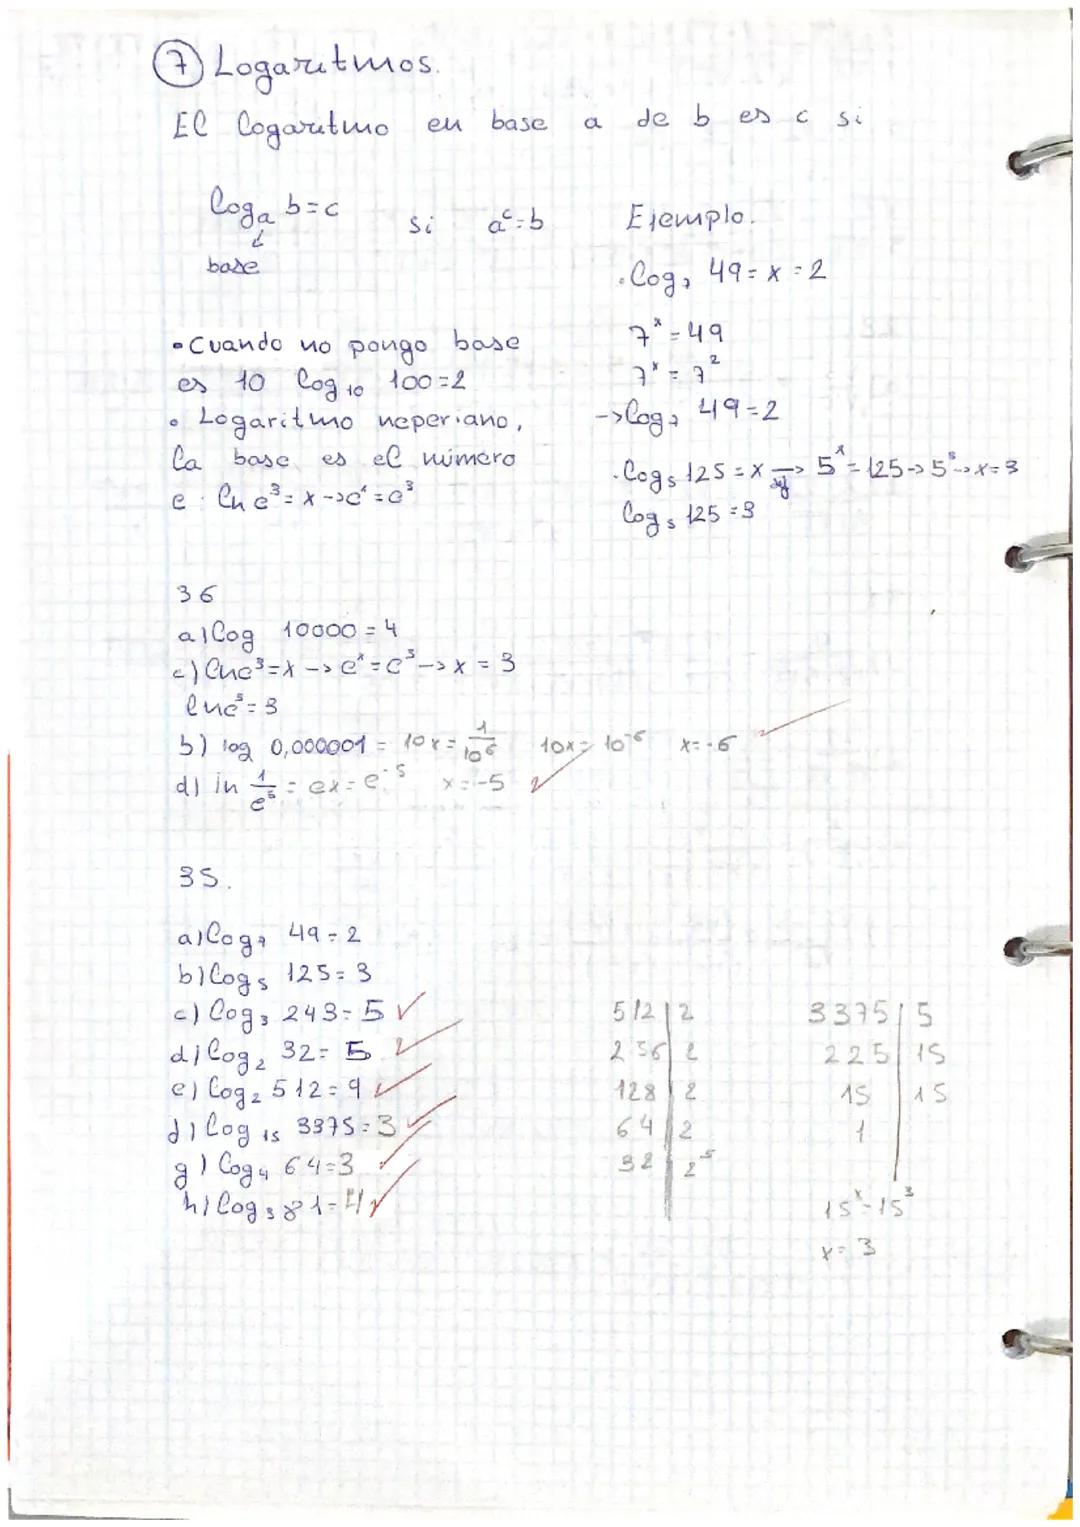 7 Logaritmos.
El logaritmo en base a de b es c si
log a b=c si a^c=b
base
Ejemplo.
·log₇ 49=x=2
7^x=49
7^x=7^2
->log₇ 49=2
·log₅ 125=x -> 5^x=125->5^3->x=3
log₅ 125=3
·Cuando no pongo base
es 10 log₁₀ 100=2
·Logaritmo neperiano,
la base es el número
e: ln e³=x->e^x=e³
36
a) log 10000=4
c) ln e³=x->e^x=e³->x=3
ln e³=3
b) log 0,000001= 10x=1/10⁶ 10x=10⁻⁶ x=-6
d) in 1/e⁵ = ex=e⁻⁵ x=-5
35.
a) log₇ 49=2
b) log₅ 125=3
c) log₃ 243=5
d) log₂ 32=5
e) log₂ 512=9
f) log₁₅ 3375=3
g) log₄ 64=3
h) log₃ 81=4
512 | 2
256 | 2
128 | 2
64 | 2
32 | 2⁵
3375 | 5
225 | 15
15 | 15
1
15^x=15³
x=3